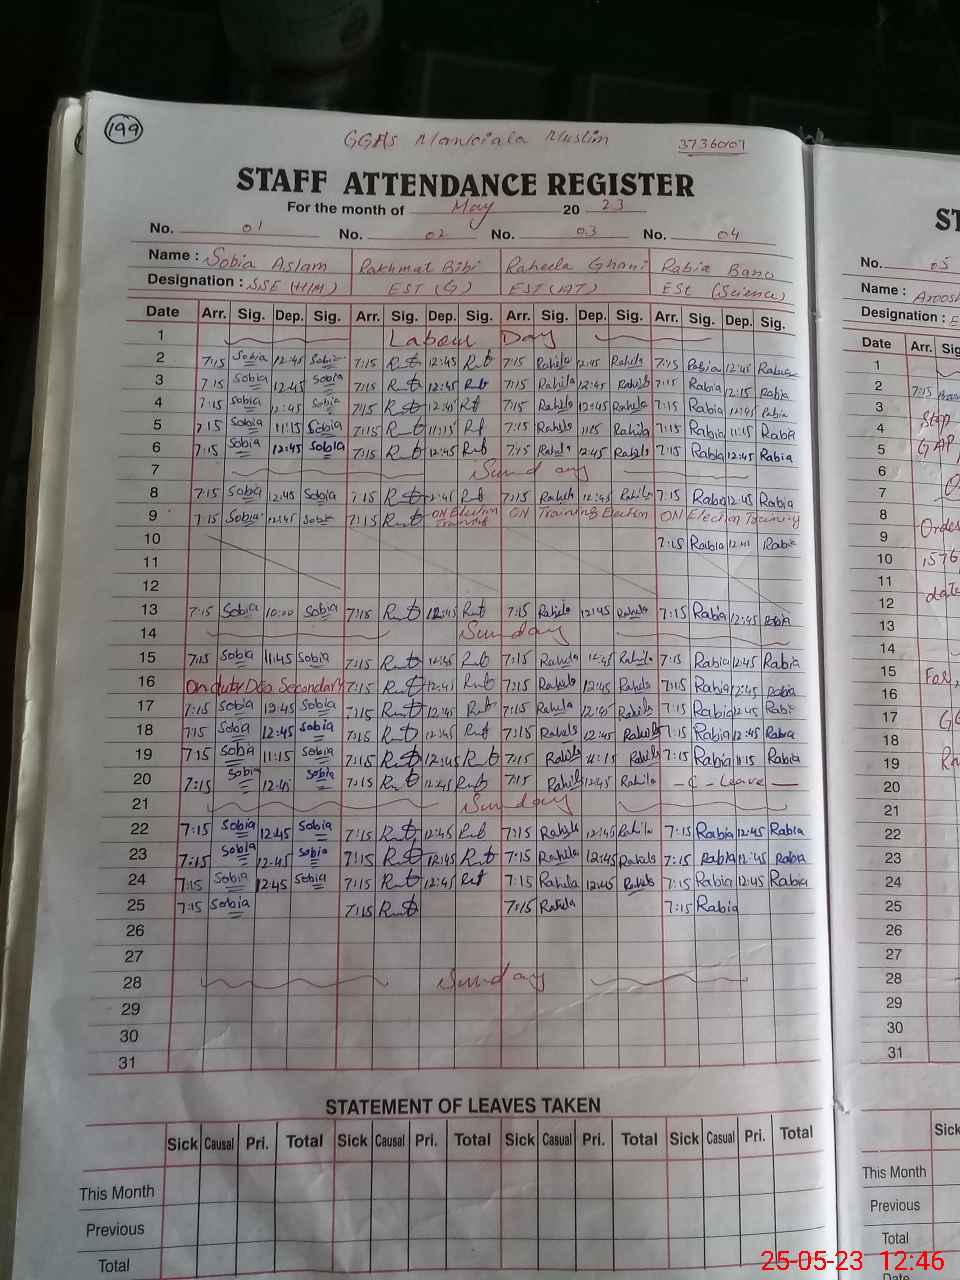 199
GGHS Mankiala Muslim 37360107
STAFF ATTENDANCE REGISTER
For the month of May 20 23
No. 01 No. 02 No. 03 No. 04
Name : Sobia Aslam Rakhmat Bibi Raheela Ghani Rabia Bano
Designation : SSE (H/M) EST (G) EST (AT) ESt (Science)
Date Arr. Sig. Dep. Sig. Arr. Sig. Dep. Sig. Arr. Sig. Dep. Sig. Arr. Sig. Dep. Sig.
1 Labour Day
2 7:15 Sobia 12:45 Sobia 7:15 12:45 7:15 Rahila 12:45 Rahila 7:15 Rabia 12:45 Rabia
3 7:15 Sobia 12:45 Sobia 7:15 12:45 7:15 Rahila 12:45 Rahila 7:15 Rabia 12:15 Rabia
4 7:15 Sobia 12:45 Sobia 7:15 12:45 7:15 Rahila 12:45 Rahila 7:15 Rabia 12:45 Rabia
5 7:15 Sobia 11:15 Sobia 7:15 11:15 7:15 Rahila 11:15 Rahila 7:15 Rabia 11:15 Rabia
6 7:15 Sobia 12:45 Sobia 7:15 12:45 7:15 Rahila 12:45 Rahila 7:15 Rabia 12:45 Rabia
7 Sunday
8 7:15 Sobia 12:45 Sobia 7:15 12:45 7:15 Rahila 12:45 Rahila 7:15 Rabia 12:45 Rabia
9 7:15 Sobia 12:45 Sobia 7:15 ON Election Training ON Training Election ON Election Training
10 7:15 Rabia Rabia
11
12
13 7:15 Sobia 10:00 Sobia 7:15 12:45 7:15 Rahila 12:45 Rahila 7:15 Rabia 12:45 Rabia
14 Sunday
15 7:15 Sobia 11:45 Sobia 7:15 12:45 7:15 Rahila 12:45 Rahila 7:15 Rabia 12:45 Rabia
16 On duty Deo Secondary 7:15 12:45 7:15 Rahila 12:45 Rahila 7:15 Rabia 12:45 Rabia
17 7:15 Sobia 12:45 Sobia 7:15 12:45 7:15 Rahila 12:45 Rahila 7:15 Rabia 12:45 Rabia
18 7:15 Sobia 12:45 Sobia 7:15 12:45 7:15 Rahila 12:45 Rahila 7:15 Rabia 12:45 Rabia
19 7:15 Sobia 11:15 Sobia 7:15 12:45 7:15 Rahila 11:15 Rahila 7:15 Rabia 11:15 Rabia
20 7:15 Sobia 12:45 Sobia 7:15 12:45 7:15 Rahila 12:45 Rahila - C - Leave -
21 Sunday
22 7:15 Sobia 12:45 Sobia 7:15 12:45 7:15 Rahila 12:45 Rahila 7:15 Rabia 12:45 Rabia
23 7:15 Sobia 12:45 Sobia 7:15 12:45 7:15 Rahila 12:45 Rahila 7:15 Rabia 12:45 Rabia
24 7:15 Sobia 12:45 Sobia 7:15 12:45 7:15 Rahila 12:45 Rahila 7:15 Rabia 12:45 Rabia
25 7:15 Sobia 7:15 7:15 Rahila 7:15 Rabia
26
27
28 Sunday
29
30
31
STATEMENT OF LEAVES TAKEN
Sick Causal Pri. Total Sick Causal Pri. Total Sick Casual Pri. Total Sick Casual Pri. Total
This Month
Previous
Total
ST
No. 05
Name :
Designation :
Date Arr.
1
2 7:15
3
4
5
6
7
8
9
10
11
12
13
14
15
16
17
18
19
20
21
22
23
24
25
26
27
28
29
30
31
Sick
This Month
Previous
Total
25-05-23 12:46